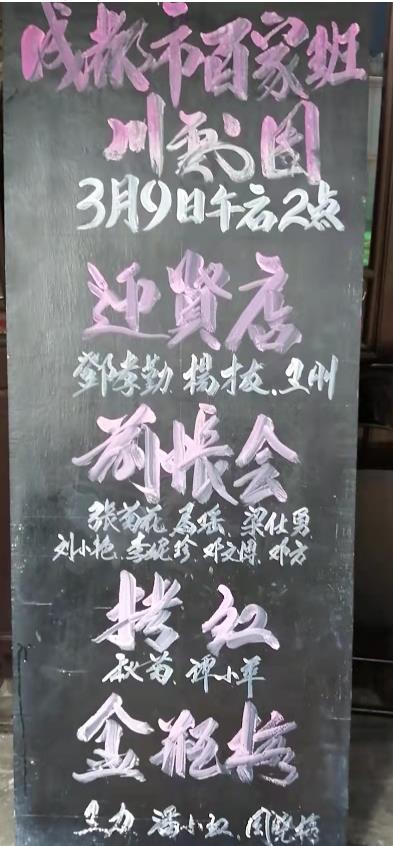 成都市百家班
川剧团
3月9日午后2点
迎贤店
鄧孝勤、楊拔、王刚
前帐会
张菊花、易瑶、梁仕勇
刘小艳、李妮珍、邓文博、邓方
拷红
秋菊、谭小军
金瓶梅
王力、潘小红、周晓梅